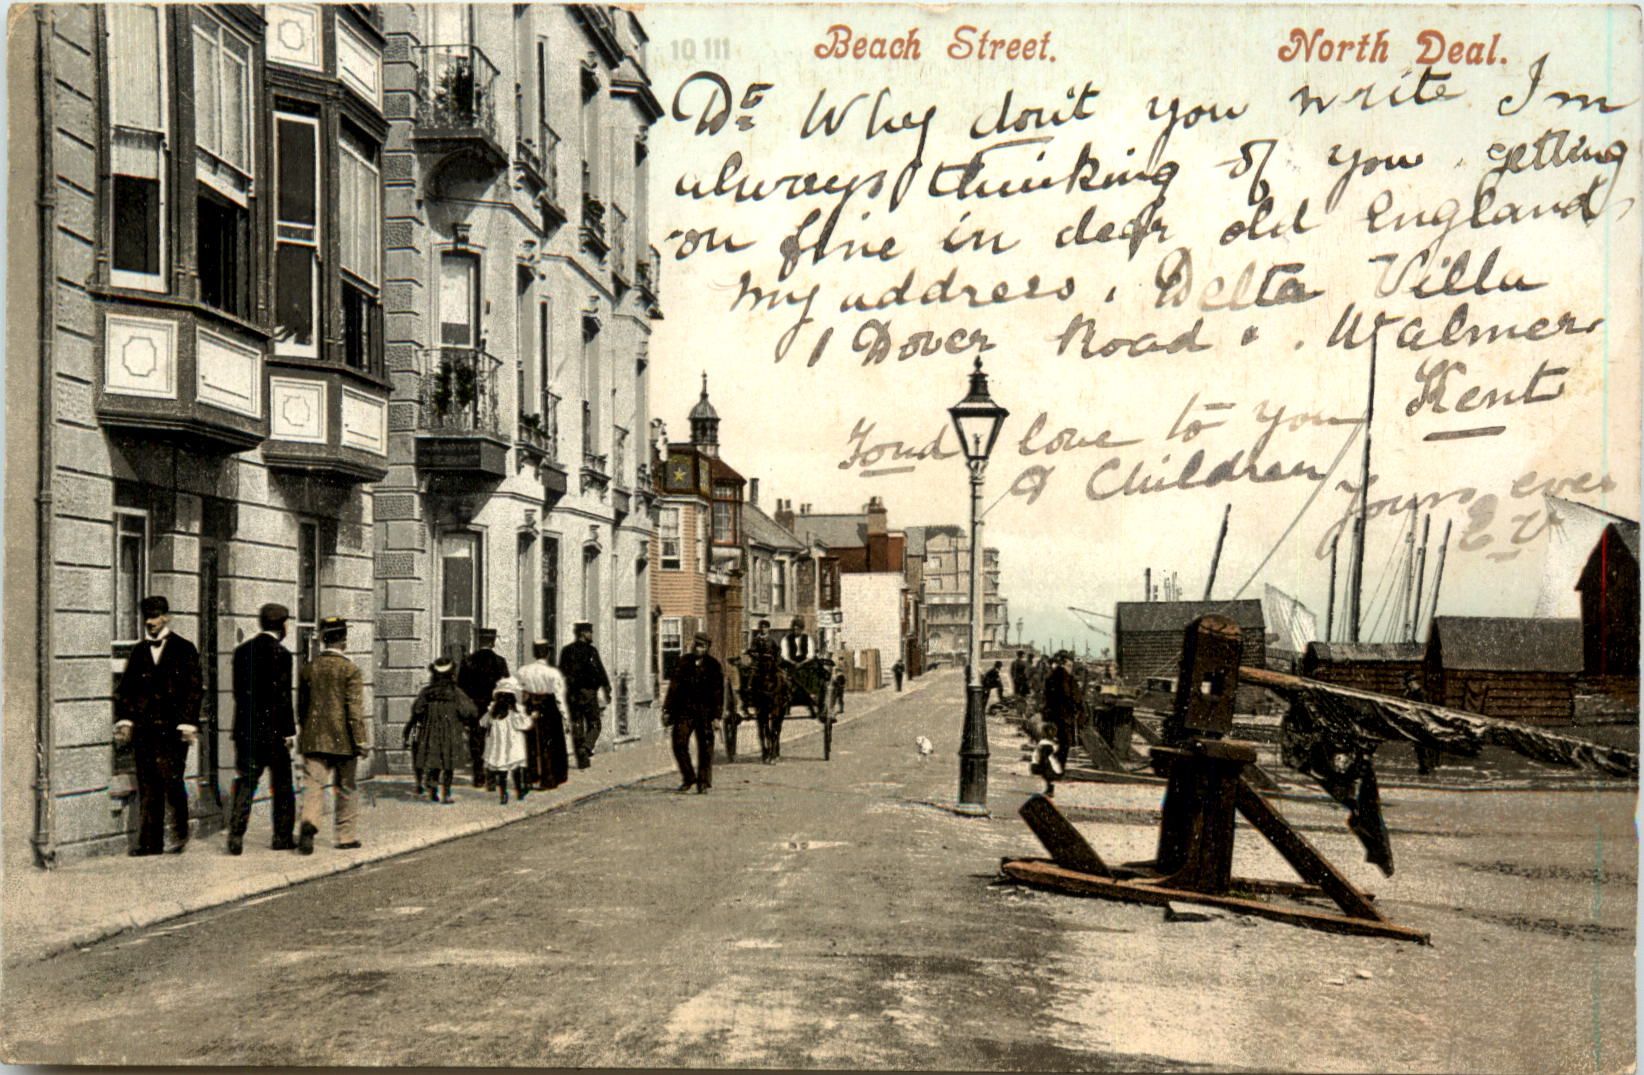 10 111
Beach Street. North Deal.
Dr Why don't you write I'm
always thinking of you. getting
on fine in dear old England,
my address, Delta Villa
1 Dover Road. Walmer
Kent
Fond love to you
& Children
Yours ever
E V